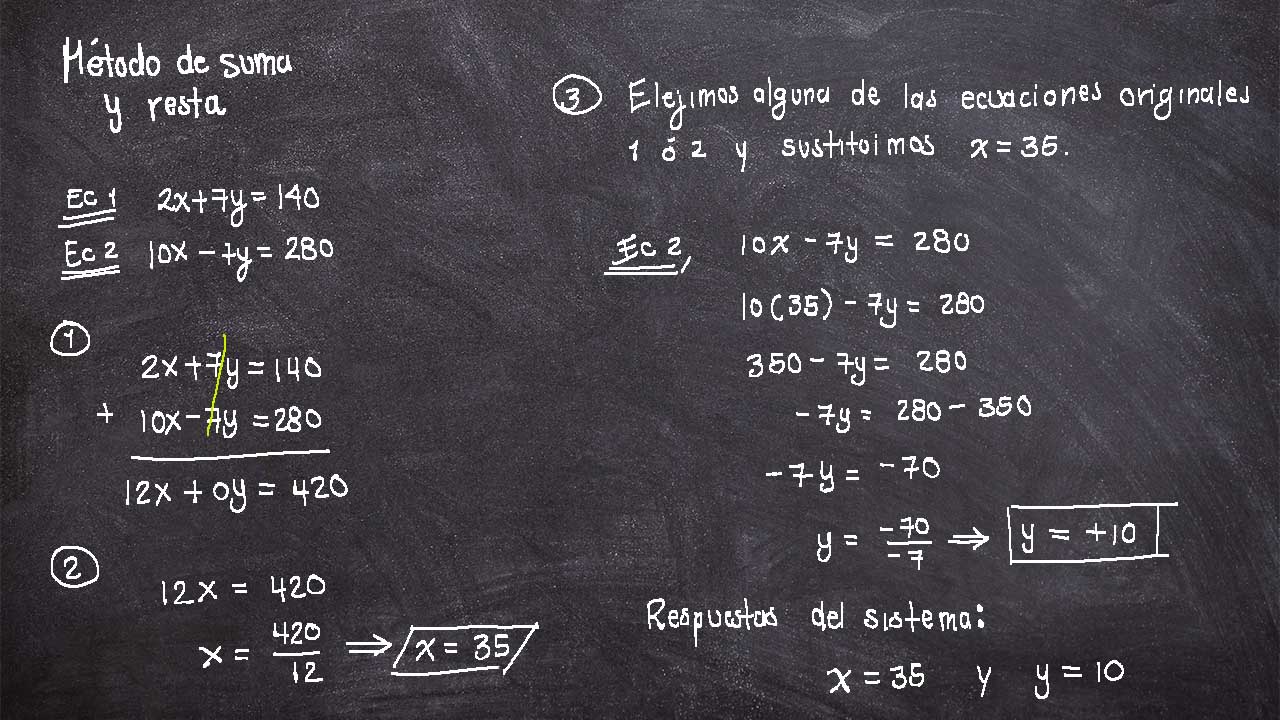 Método de suma
y resta
Ec 1 2x+7y=140
Ec 2 10x-7y=280
1
2x+7y=140
+ 10x-7y=280
12x+0y=420
2
12x=420
x=420/12 ⇒ x=35
3 Elejimos alguna de las ecuaciones originales
1 ó 2 y sustituimos x=35.
Ec 2, 10x-7y=280
10(35)-7y=280
350-7y=280
-7y=280-350
-7y=-70
y=-70/-7 ⇒ y=+10
Respuestas del sistema:
x=35 y y=10